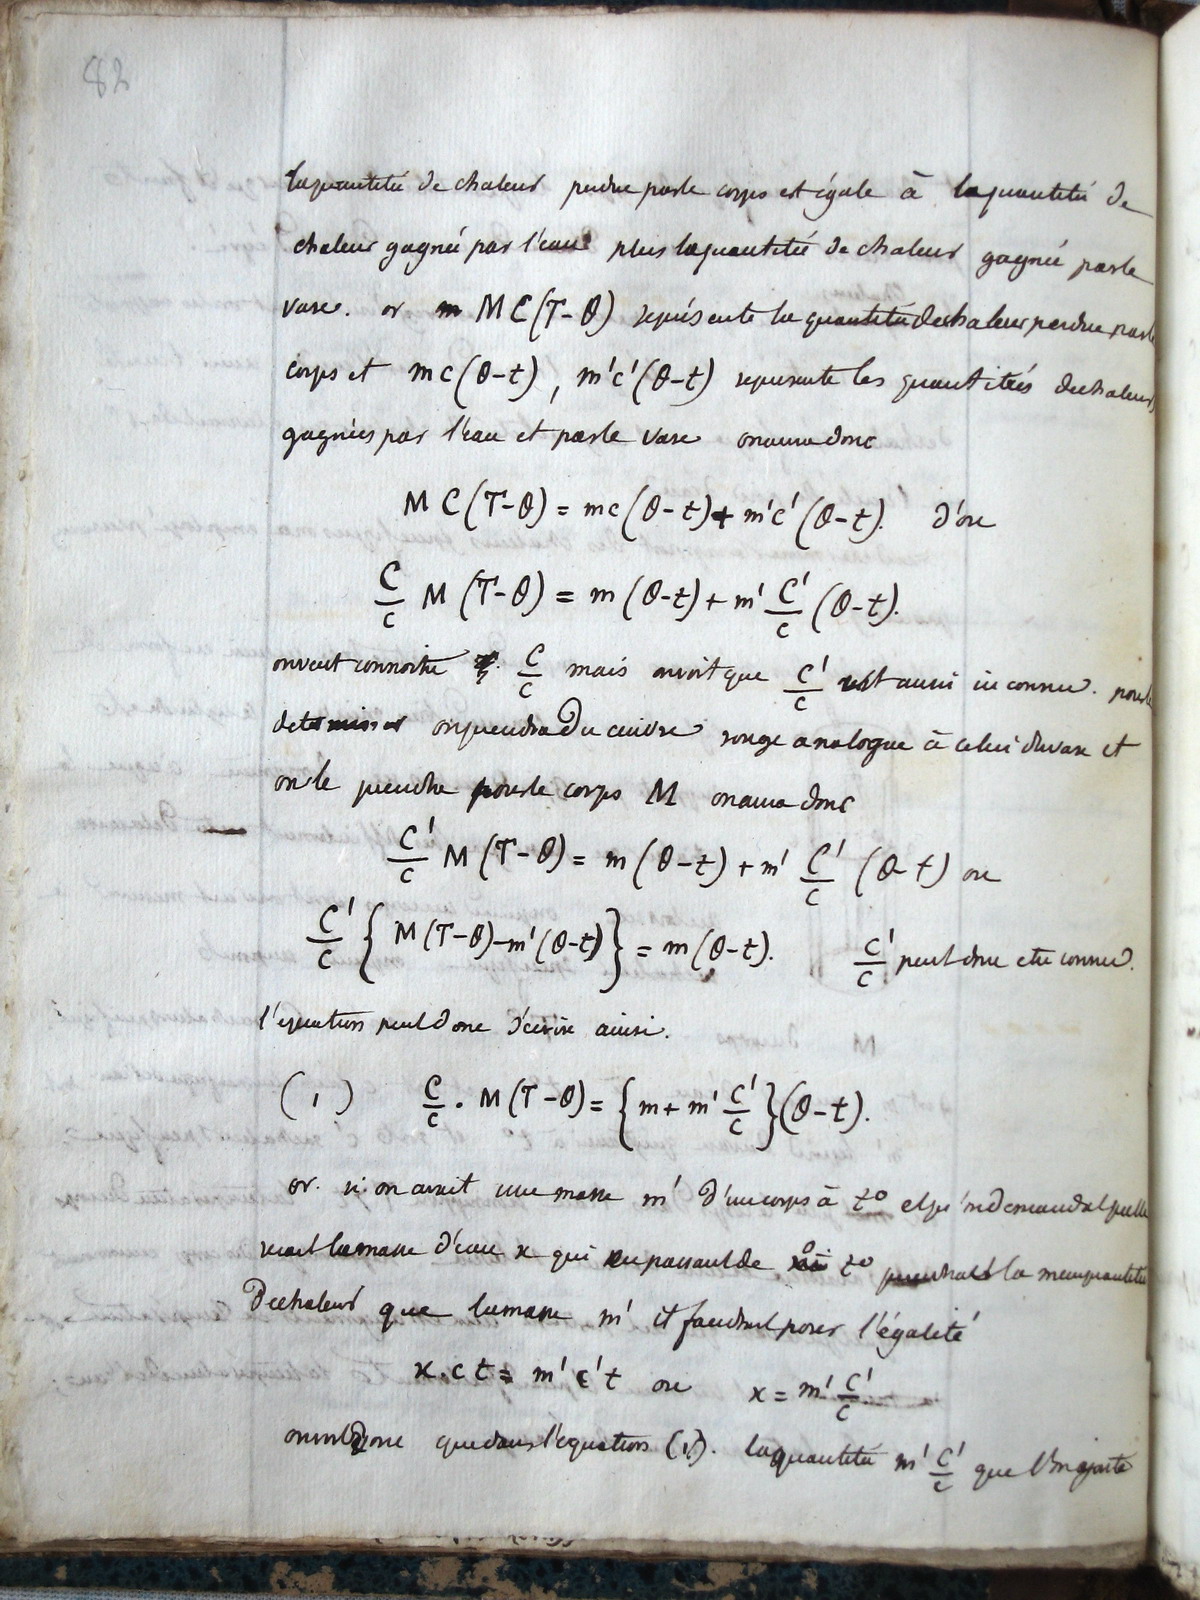 82
la quantité de chaleur perdue par le corps est égale à la quantité de
chaleur gagnée par l'eau plus la quantité de chaleur gagnée par le
vase. or MC(T-θ) représente la quantité de chaleur perdue par le
corps et mc(θ-t), m'c'(θ-t) represente les quantités de chaleur
gagnées par l'eau et par le vase on aura donc
MC(T-θ) = mc(θ-t) + m'c'(θ-t). d'ou
C/c M (T-θ) = m (θ-t) + m' C'/c (θ-t).
on veut connoitre C/c mais on voit que C'/c est aussi inconnu. pour le
determiner on prendra du cuivre rouge analogue à celui du vase et
on le prendra pour le corps M on aura donc
C'/c M (T-θ) = m (θ-t) + m' C'/c (θ-t) ou
C'/c { M(T-θ)-m'(θ-t) } = m (θ-t). C'/c peut donc etre connu.
l'equation peut donc s'écrire ainsi.
(1) C/c . M(T-θ) = { m + m' C'/c } (θ-t).
or. si on avait une masse m' d'un corps à t° et qu'on demandat quelle
serait la masse d'eau x qui en passant de t° la meme quantité
de chaleur que la masse m' il faudrait poser l'égalité
x.ct = m'c't ou x = m' C'/c
on voit donc que dans l'equation (1). la quantité m' C'/c que l'on ajoute